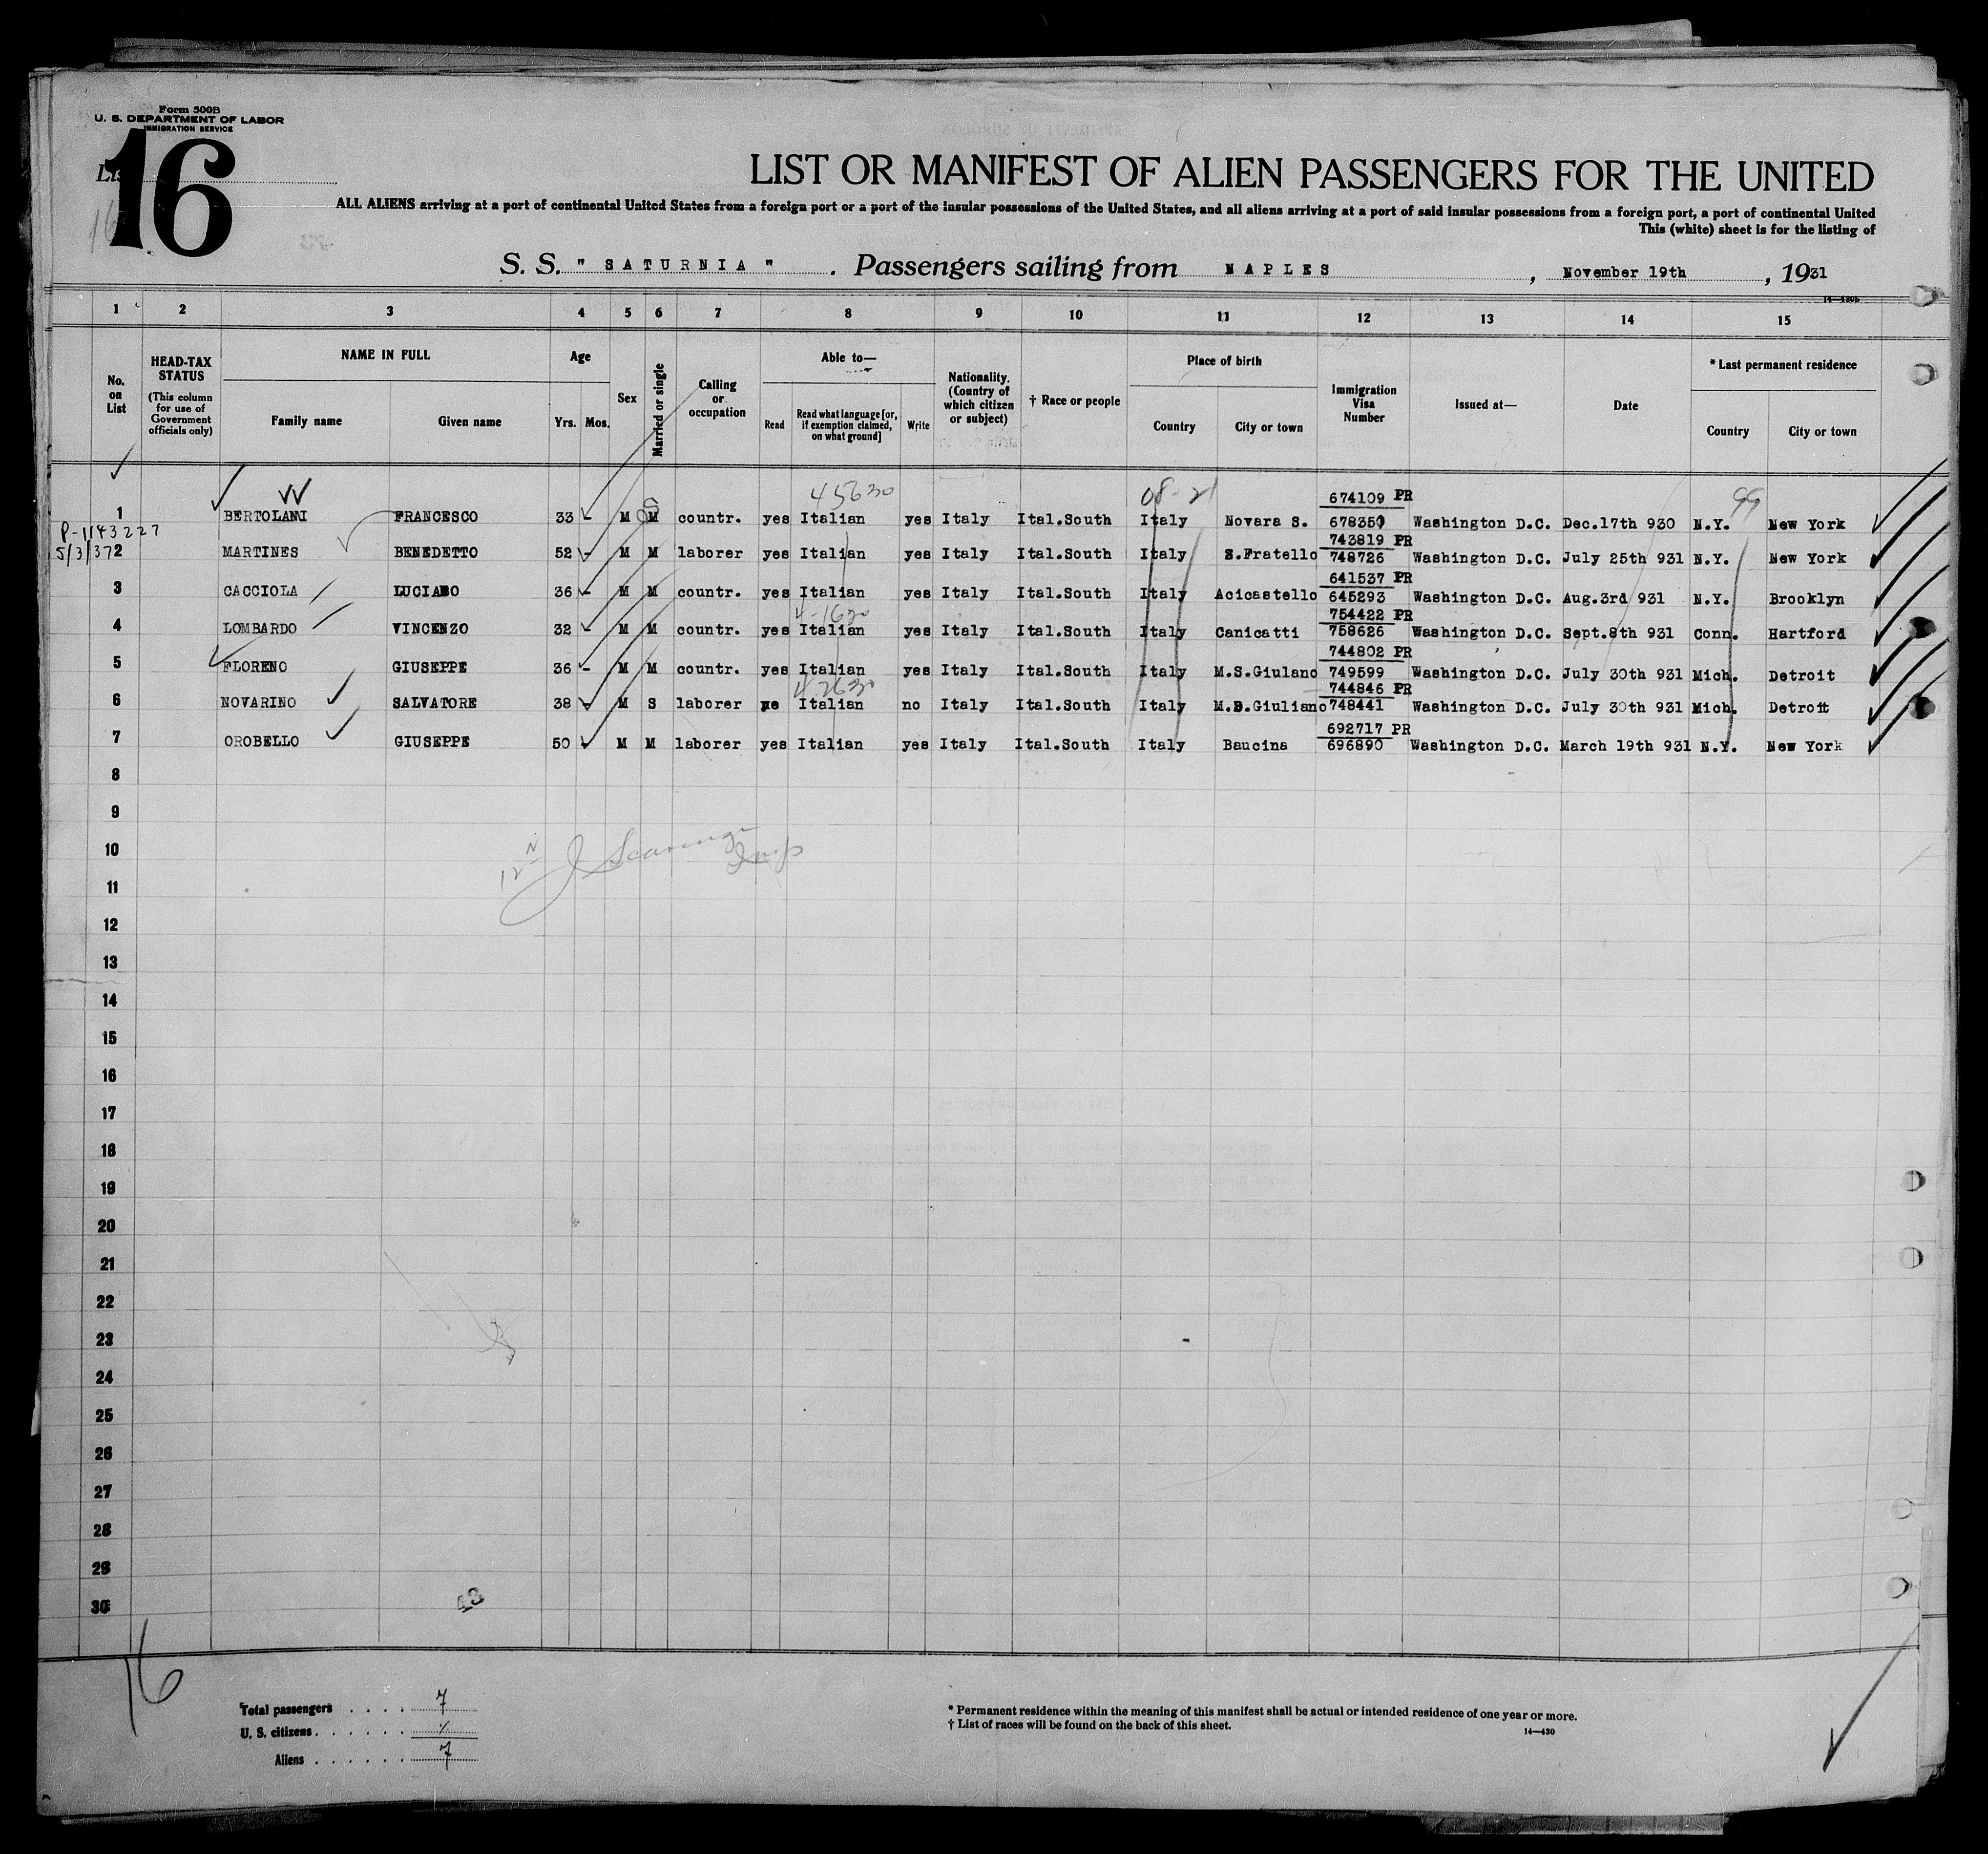 Form 500B
U. S. DEPARTMENT OF LABOR
IMMIGRATION SERVICE
16
LIST OR MANIFEST OF ALIEN PASSENGERS FOR THE UNITED
ALL ALIENS arriving at a port of continental United States from a foreign port or a port of the insular possessions of the United States, and all aliens arriving at a port of said insular possessions from a foreign port, a port of continental United
This (white) sheet is for the listing of
S. S. " SATURNIA ". Passengers sailing from NAPLES, November 19th, 1931
14—430b
1 2 3 4 5 6 7 8 9 10 11 12 13 14 15
No. on List
HEAD-TAX STATUS (This column for use of Government officials only)
NAME IN FULL
Family name Given name
Age
Yrs. Mos.
Sex
Married or single
Calling or occupation
Able to—
Read Read what language [or, if exemption claimed, on what ground] Write
Nationality. (Country of which citizen or subject)
† Race or people
Place of birth
Country City or town
Immigration Visa Number
Issued at—
Date
* Last permanent residence
Country City or town
45630 08-21 99
674109 PR
1 BERTOLAMI FRANCESCO 33 - M M countr. yes Italian yes Italy Ital.South Italy Novara S. 678350 Washington D.C. Dec.17th 930 N.Y. New York
P-1143227
743819 PR
5/3/37 2 MARTINES BENEDETTO 52 - M M laborer yes Italian yes Italy Ital.South Italy S.Fratello 748726 Washington D.C. July 25th 931 N.Y. New York
641537 PR
3 CACCIOLA LUCIANO 36 - M M countr. yes Italian yes Italy Ital.South Italy Acicastello 645293 Washington D.C. Aug.3rd 931 N.Y. Brooklyn
4-1630
754422 PR
4 LOMBARDO VINCENZO 32 - M M countr. yes Italian yes Italy Ital.South Italy Canicatti 758626 Washington D.C. Sept.8th 931 Conn. Hartford
744802 PR
5 FLORENO GIUSEPPE 36 - M M countr. yes Italian yes Italy Ital.South Italy M.S.Giulano 749599 Washington D.C. July 30th 931 Mich. Detroit
744846 PR
6 NOVARINO SALVATORE 38 - M S laborer Italian no Italy Ital.South Italy M.D.Giuliano 748441 Washington D.C. July 30th 931 Mich. Detroit
692717 PR
7 OROBELLO GIUSEPPE 50 - M M laborer yes Italian yes Italy Ital.South Italy Baucina 696890 Washington D.C. March 19th 931 N.Y. New York
8
9
10
11
12
13
14
15
16
17
18
19
20
21
22
23
24
25
26
27
28
29
30
43
16
Total passengers . . . . 7
U. S. citizens . . . . . .
Aliens . . . . . . 7
* Permanent residence within the meaning of this manifest shall be actual or intended residence of one year or more.
† List of races will be found on the back of this sheet.
14—430